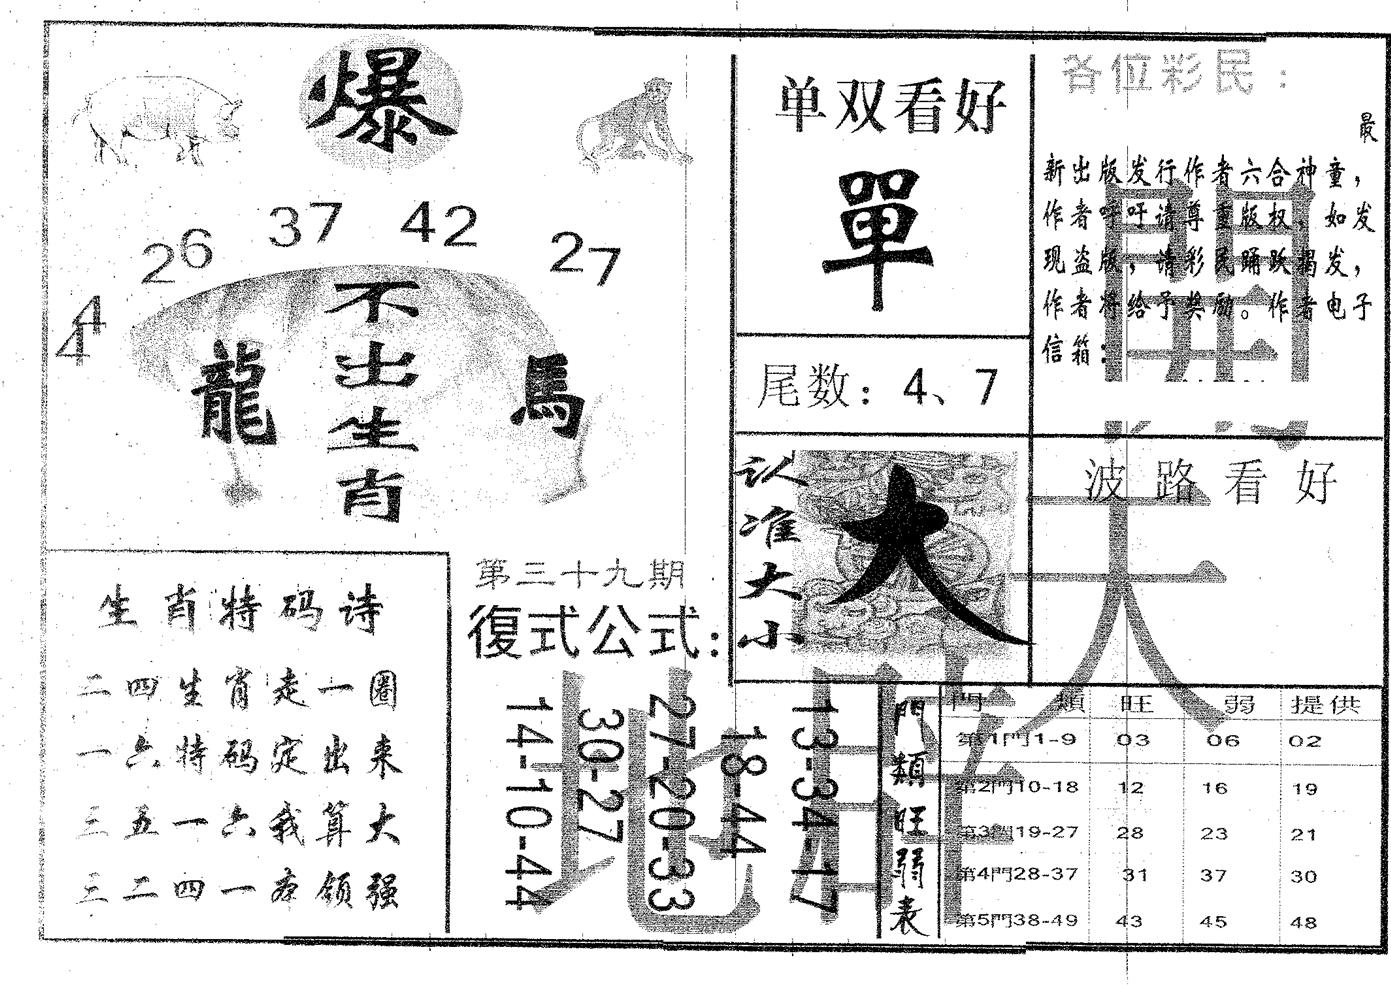 爆
26
37
42
27
44
不出生肖
龍
馬
生肖特码诗
二四生肖走一圈
一六特码定出来
三五一六我算大
三二四一本领强
第三十九期
復式公式：
14-10-44
30-27
27-20-33
18-44
13-34-17
单双看好
單
尾数：4、7
认准大小
大
各位彩民：
最
新出版发行作者六合神童，
作者呼吁请尊重版权，如发
现盗版，请彩民踊跃揭发，
作者将给予奖励。作者电子
信箱：
波路看好
門類旺弱表
門類 旺 弱 提供
第1門1-9 03 06 02
第2門10-18 12 16 19
第3門19-27 28 23 21
第4門28-37 31 37 30
第5門38-49 43 45 48